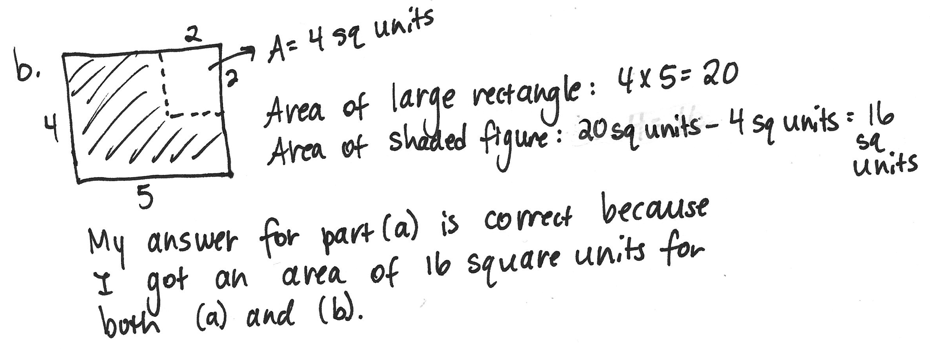 b.
2
2
4
5
A = 4 sq units
Area of large rectangle: 4 x 5 = 20
Area of shaded figure: 20 sq units - 4 sq units = 16
sq
units
My answer for part (a) is correct because
I got an area of 16 square units for
both (a) and (b).